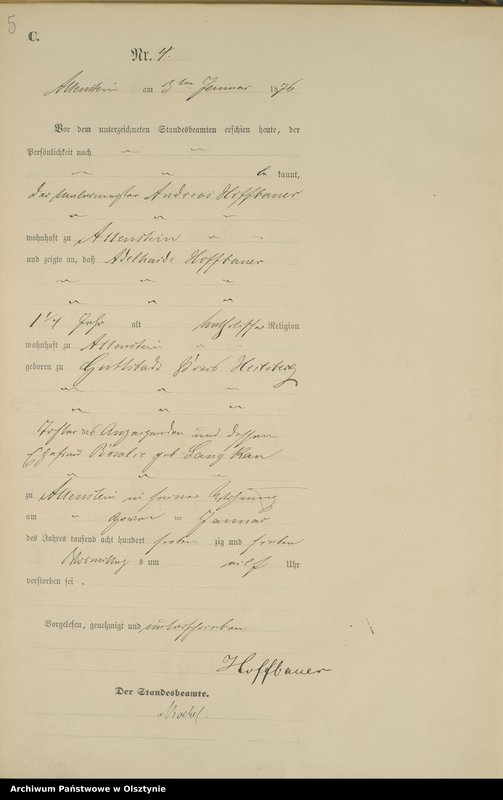 5
C.
Nr. 4.
Allenstein am 3ten Januar 1876
Vor dem unterzeichneten Standesbeamten erschien heute, der
Persönlichkeit nach
be kannt,
der Malermeister Andreas Hoffbauer
wohnhaft zu Allenstein
und zeigte an, daß Adelhaide Hoffbauer
Jahr alt katholischer Religion
wohnhaft zu Allenstein
geboren zu Guttstadt Kreis Heilsberg
Tochter des Anzeigenden und dessen
Ehefrau Rosalie geb. Langkau
zu Allenstein in seiner Wohnung
am zwei ten Januar
des Jahres tausend acht hundert sieben zig und
Vormittag s um elf Uhr
verstorben sei.
Vorgelesen, genehmigt und unterschrieben
Hoffbauer
Der Standesbeamte.
Archiwum Państwowe w Olsztynie